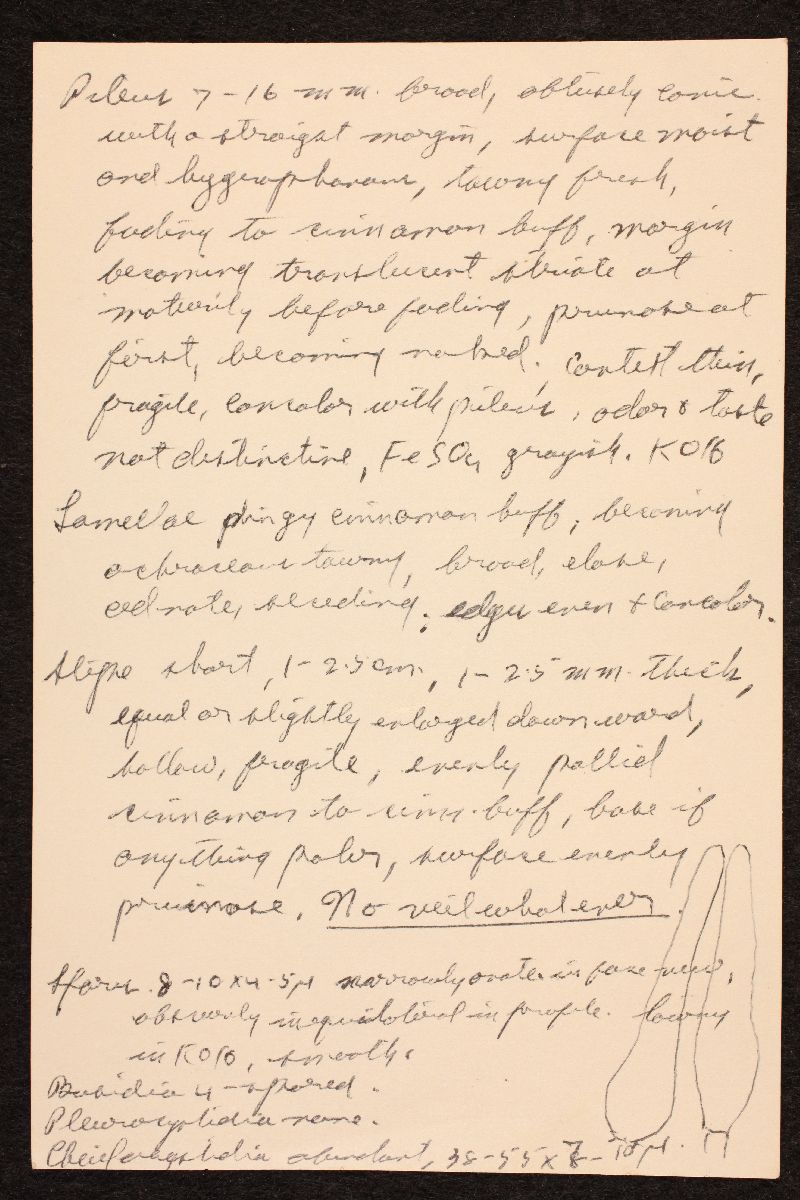 Pileus 7-16 mm. broad, obtusely conic
with a straight margin, surface moist
and hygrophanous, tawny fresh,
fading to cinnamon buff, margin
becoming translucent striate at
maturity before fading, pruinose at
first, becoming naked. Context thin,
fragile, concolor with pileus, odor & taste
not distinctive, FeSO4 grayish. KOH
Lamellae dingy cinnamon buff, becoming
ochraceous tawny, broad, close,
adnate, seceding, edges even & concolor.
Stipe short, 1-2.5 cm., 1-2.5 mm. thick,
equal or slightly enlarged downward,
hollow, fragile, evenly pallid
cinnamon to cinn. buff, base if
anything paler, surface evenly
pruinose. No veil whatever.
Spores 8-10 x 4-5µ narrowly ovate in face view,
obscurely inequilateral in profile. tawny
in KOH, smooth.
Basidia 4-spored.
Pleurocystidia none.
Cheilocystidia abundant, 38-55 x